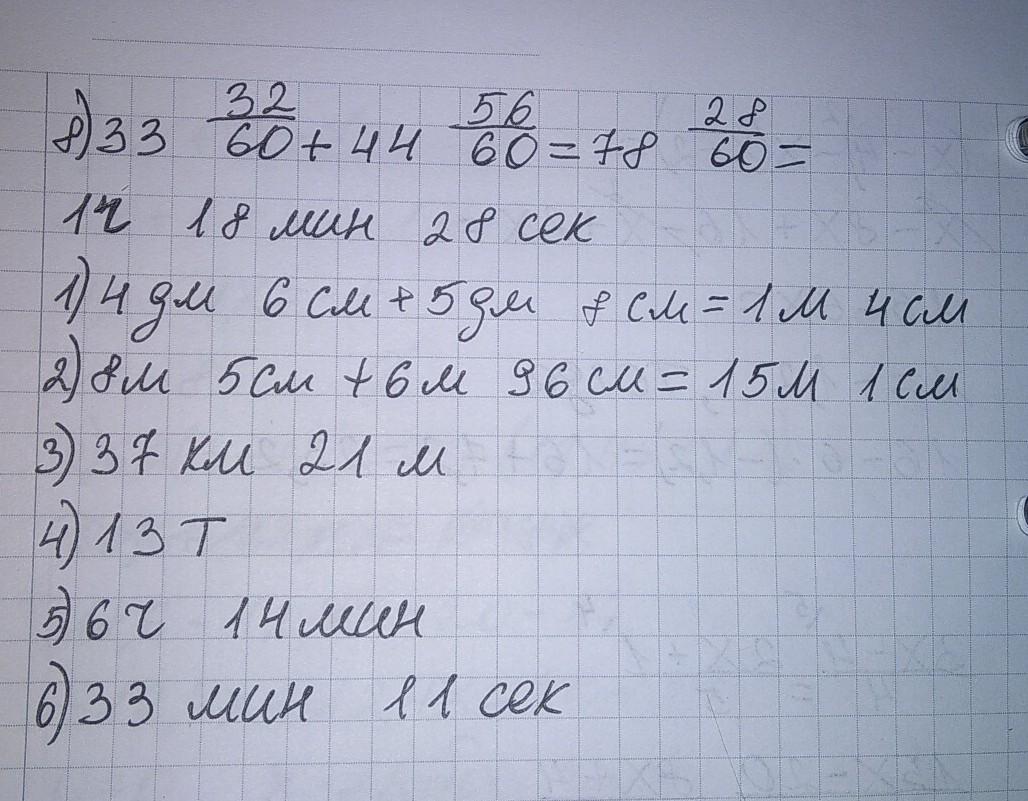 8) 33 32/60 + 44 56/60 = 78 28/60 =
1ч 18 мин 28 сек
1) 4 дм 6 см + 5 дм 8 см = 1 м 4 см
2) 8 м 5 см + 6 м 96 см = 15 м 1 см
3) 37 км 21 м
4) 13 т
5) 6 ч 14 мин
6) 33 мин 11 сек